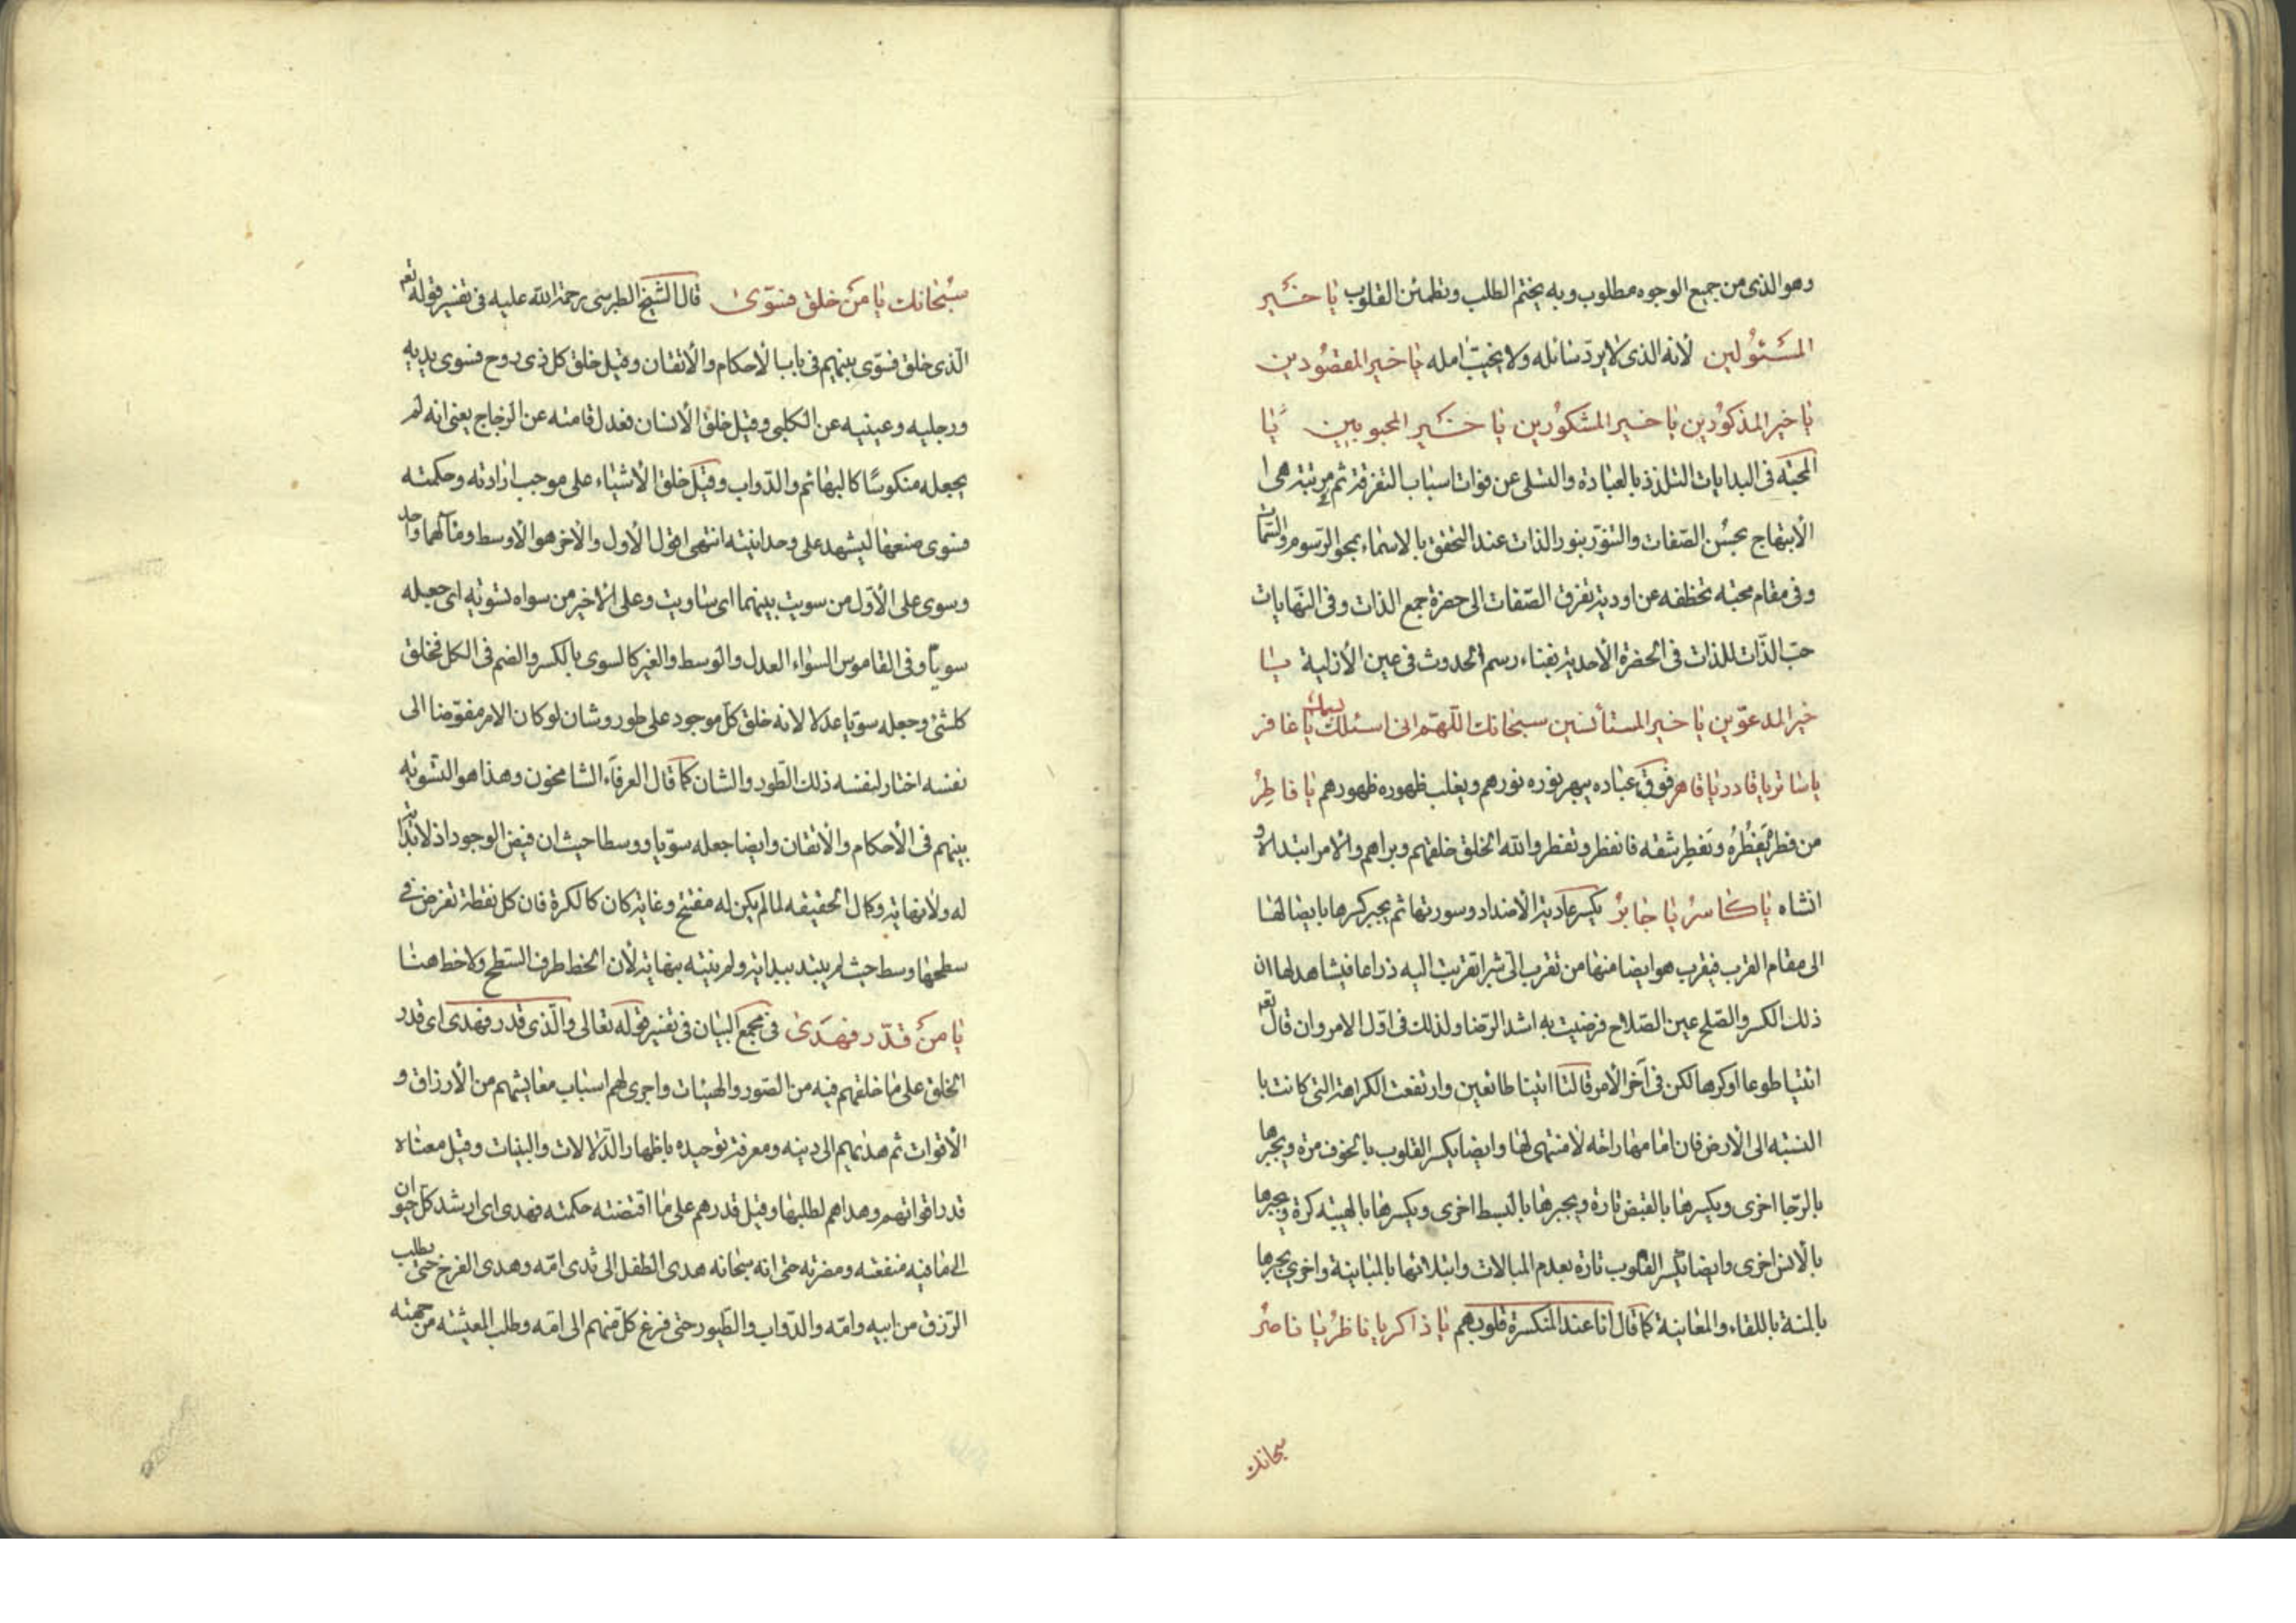 وهو الذى من جميع الوجوه مطلوب وبه يختم الطلب وتطمئن القلوب يا خير
المسئولين لانه الذى لا يردّ سائله ولا يخيب امله يا خير المقصودين
يا خير المذكورين يا خير المشكورين يا خير المحبوبين يا
المحبّة فى البدايات التلذذ بالعبادة والتسلى عن فوات اسباب التفرقة ثم مرتبة هى
الأبتهاج بحسن الصّفات والتنوّر بنور الذات عند التحقق بالاسماء بمحو الرّسوم والسّمات
وفى مقام محبّه تخطفه عن اودية تفرق الصّفات الى حضرة جمع الذات وفى النّهايات
حبّ الذّات للذات فى الحضرة الأحدية بفناء رسم الحدوث فى عين الأزلية يا
خير المدعوّين يا خير المستأنسين سبحانك اللّهمّ انى اسئلك باسمك يا غافر
يا ساتر يا قادر يا قاهر فوق عباده يبهر نوره نورهم ويغلب ظهوره ظهورهم يا فاطر
من فطره يَفطُرُه وتَفطِر شقه فانفطر وتفطر والله الخلق خلقهم وبراهم والامر ابتداه و
انشاه يا كاسر يا جابر يكسر عادية الأضداد وسورتها ثم يجبر كسرها بايصالها
الى مقام القرب فيقرب هو ايضا منها من تقرب الىّ شبرا تقربت اليه ذراعا فيشاهد لها ان
ذلك الكسر والصّلح عين الصّلاح فرضيت به اشد الرّضا ولذلك فى اوّل الامر وان قال تعم
ائتيا طوعا او كرها لكن فى آخر الأمر قالتا اتينا طائعين وارتفعت الكراهة التى كانت با
النسبة الى الأرض فان اتمامها راحة لا منتهى لها وايضا يكسر القلوب بالخوف مرة ويجبرها
بالرّجا اخرى ويكسرها بالقبض تارة ويجبرها بالبسط اخرى ويكسرها بالهيبة كرة ويجبرها
بالأنس اخرى وايضا يكسر القلوب تارة بعدم المبالات وابتلائها بالمباينة واخرى يجبرها
بالمنة باللقاء والمعاينة كما قال انا عند المنكسرة قلوبهم يا ذاكر يا ناظر يا ناصر
سبحانك
سبحانك يا من خلق فسوّى قال الشيخ الطبرسى رحمة الله عليه فى تفسير قوله تعم
الّذى خلق فسوّى بينهم فى باب الأحكام والأتقان وقيل خلق كل ذى روح فسوى يديه
ورجليه وعينيه عن الكلبى وقيل خلق الأنسان فعدل قامته عن الزجاج يعنى انه لم
يجعله منكوسًا كالبهائم والدّواب وقيل خلق الأشياء على موجب ارادته وحكمته
فسوى صنعها ليشهد على وحدانيته انتهى اقول الأول والاخر هو الأوسط ومآلهما واحد
وسوى على الأوّل من سويت بينهما اى ساويت وعلى الاخير من سواه تسوية اى جعله
سوياً وفى القاموس السّواء العدل والوسط والغير كالسوى بالكسر والضم فى الكل فخلق
كلشئ وجعله سويّا عدلا لانه خلق كلّ موجود على طور وشان لو كان الامر مفوّضا الى
نفسه اختار لنفسه ذلك الطّور والشان كما قال العرفاء الشامخون وهذا هو التسوية
بينهم فى الأحكام والأتقان وايضا جعله سويّا ووسطا حيث ان فيض الوجود اذ لا بداية
له ولا نهاية وكمال الحقيقه لما لم يكن له مفتتح وغاية كان كالكرة فان كل نقطة تفرض فى
سطحها وسط حيث لم يبتد ببداية ولم ينته بنهاية لأن الخط طرف السّطح ولا خط هنا
يا من قدّر فهدى فى مجمع البيان فى تفسير قوله تعالى والّذى قدر فهدى اى قدر
الخلق على ما خلقهم فيه من الصّور والهيئات واجرى لهم اسباب معايشهم من الأرزاق و
الأقوات ثم هديهم الى دينه ومعرفة توحيده باظهار الدّلالات والبينات وقيل معناه
قدر اقواتهم وهداهم لطلبها وقيل قدرهم على ما اقتضته حكمته فهدى اى ارشد كلّ حيوان
الى ما فيه منفعته ومضرته حتى انه سبحانه هدى الطفل الى ثدى امّه وهدى الفرخ حتى يطلب
الرّزق من ابيه وامّه والدّواب والطّيور حتى فزع كلّ منهم الى امّه وطلب المعيشة من جهته